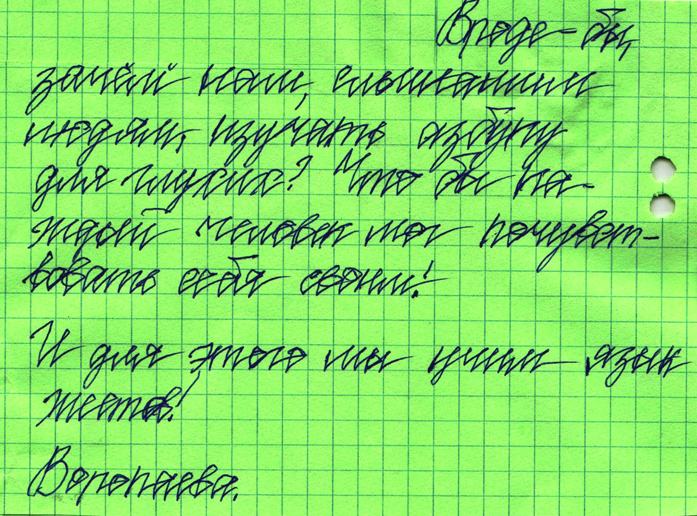 Вроде-бы,
зачем нам, слышащим
людям, изучать азбуку
для глухих? Что бы ка-
ждый человек мог почувст-
вовать себя своим!
И для этого мы учим язык
жестов!
Воропаева.